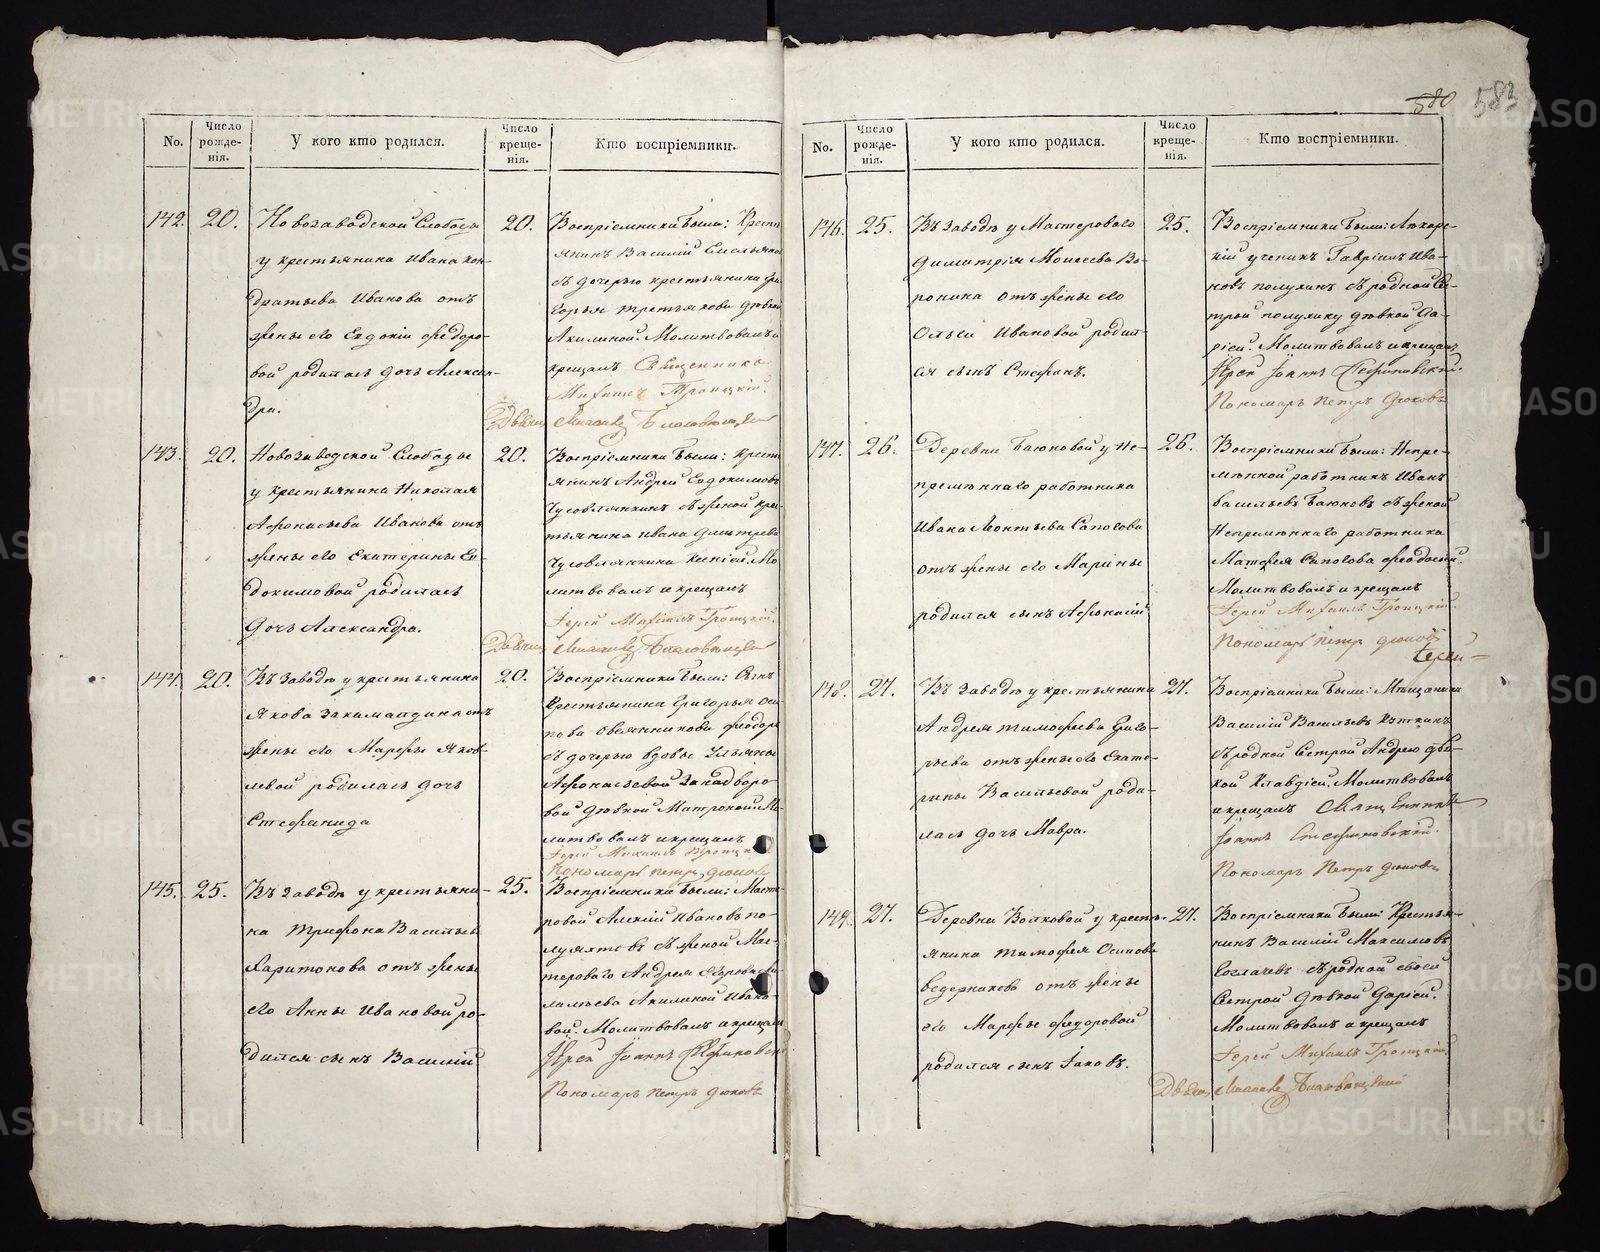 580 583
No.
Число рожде-
нія.
У кого кто родился.
Число креще-
нія.
Кто воспріемники.
142. 20.
Новозаводской Слободы
у крестьянина Ивана Кон-
дратьева Иванова отъ
жены его Евдокіи Федоро-
вой родилась дочь Алексан-
дра.
20.
Воспріемники были: Кресть
янинъ Василій Емельянов
съ дочерью крестьянина Гри
горья Третьякова девкой
Акилиной. Молитвовалъ и
крещалъ Священникъ
Михаилъ Троицкій.
143. 20.
Новозаводской Слободы
у крестьянина Николая
Афонасьева Иванова отъ
жены его Екатерины Ев-
докимовой родилась
дочь Александра.
20.
Воспріемники были: крест
янинъ Андрей Евдокимовъ
Чусовлянкинъ съ женой кре
стьянина Ивана Дмитрева
Чусовлянкина Ксеніей. Мо
литвовалъ и крещалъ
Іерей Михаилъ Троицкій.
144. 20.
Въ заводѣ у крестьянина
Якова отъ
жены его Марфы Яков-
левой родилась дочь
Стефанида
20.
Воспріемники были: Сынъ
Крестьянина Григорья Оси-
пова Овчинникова Феодоръ
съ дочерью вдовы Ульяны
Афонасьевой Занадворо-
вой девкой Матроной. Мо-
литвовалъ и крещалъ
Іерей Михаилъ Троицкій
Пономарь Петръ Дюковъ
145. 25.
Въ заводѣ у крестьяни-
на Трифона Васильев
Харитонова отъ жены
его Анны Ивановой ро-
дился сынъ Василій
25.
Воспріемники были: Масте-
ровой Алексій Ивановъ По-
луяхтовъ съ женой Мас-
терового Андрея Егорова
Акилиной Ивано-
вой. Молитвовалъ и крещалъ
Іерей Іоаннъ Стефановскій
Пономарь Петръ Дюковъ
No.
Число рожде-
нія.
У кого кто родился.
Число креще-
нія.
Кто воспріемники.
146. 25.
Въ заводѣ у Мастероваго
Димитрія Моисеева Во-
ронина отъ жены его
Ольги Ивановой родил-
ся сынъ Стефанъ.
25.
Воспріемники были: Лѣкарс-
кій ученикъ Гавріилъ Ива-
новъ Полухинъ съ родной Се-
строй Полухину девкой Да-
рьей. Молитвовалъ и крещалъ
Іерей Іоаннъ Стефановскій.
Пономарь Петръ Дюковъ
147. 26.
Деревни Баюновой у Не-
премѣннаго работника
Ивана Леонтьева Сапогова
отъ жены его Марины
родился сынъ Афонасій
26.
Воспріемники были: Непре-
мѣнной работникъ Иванъ
Васильевъ Баюновъ съ женой
Непремѣннаго работника
Матфея Сапогова Феодосьей.
Молитвовалъ и крещалъ
Іерей Михаилъ Троицкій.
Пономарь Петръ Дюковъ
148. 27.
Въ заводѣ у крестьянина
Андрея Тимофеева Григо-
рьева отъ жены его Екате-
рины Васильевой роди-
лась дочь Мавра.
27.
Воспріемники были: Мѣщанинъ
Василій Васильевъ
съ родной Сестрой Андрею дѣв-
кой Клавдіей. Молитвовалъ
и крещалъ Священникъ
Іоаннъ Стефановскій.
Пономарь Петръ Дюковъ
149. 27.
Деревни Волковой у кресть-
янина Тимофея Осипова
Ведерникова отъ жены
его Марфы Федоровой
родился сынъ Іаковъ.
27.
Воспріемники были: Крестья-
нинъ Василій Максимовъ
Соглачевъ съ родной своей
Сестрой Девкой Дарьей.
Молитвовалъ и крещалъ
Іерей Михаилъ Троицкій
METRIKI.GASO-URAL.RU